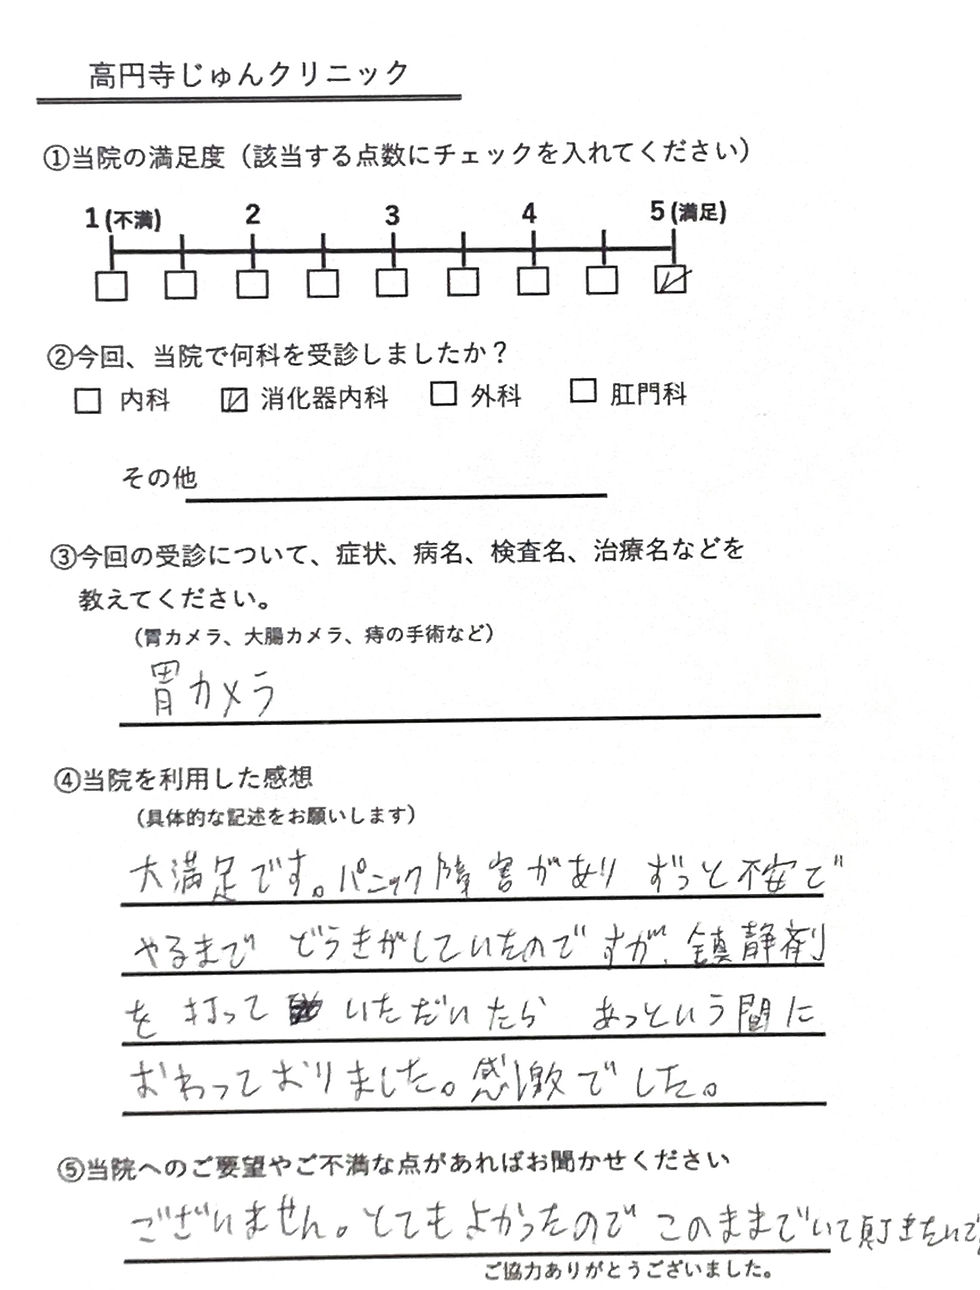 高円寺じゅんクリニック
①当院の満足度（該当する点数にチェックを入れてください）
1(不満) 2 3 4 5(満足)
②今回、当院で何科を受診しましたか？
内科 消化器内科 外科 肛門科
その他
③今回の受診について、症状、病名、検査名、治療名などを
教えてください。
（胃カメラ、大腸カメラ、痔の手術など）
胃カメラ
④当院を利用した感想
（具体的な記述をお願いします）
大満足です。パニック障害があり ずっと不安で
やるまで どうきがしていたのですが、鎮静剤
を 打って いただいたら あっという間に
おわっておりました。感激でした。
⑤当院へのご要望やご不満な点があればお聞かせください
ございません。とてもよかったので このままでいて頂きたいで
ご協力ありがとうございました。